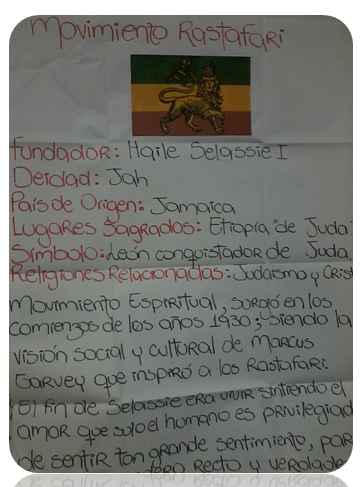 Movimiento Rastafari
Fundador: Haile Selassie I
Deidad: Jah
País de Origen: Jamaica
Lugares Sagrados: Etiopía "de Juda
Símbolo: León conquistador de Juda
Religiones Relacionadas: Judaismo y Crist
Movimiento Espiritual, surgió en los
comienzos de los años 1930; siendo la
visión social y cultural de Marcus
Garvey que inspiró a los Rastafari.
"El fin de Selassie era vivir sintiendo el
amor que solo el humano es privilegiad
de sentir tan grande sentimiento, par
recto y verdade